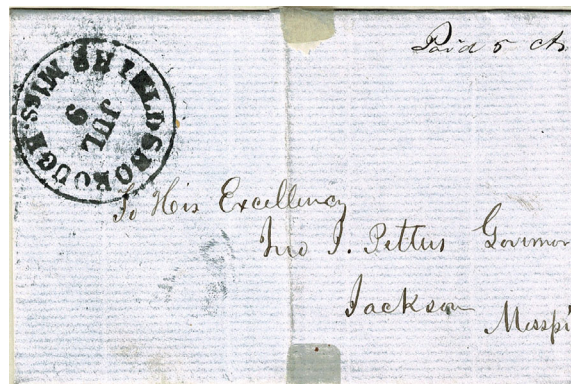 Paid 5 cts
SHIELDSBOROUGH Miss.
JUL
To His Excellency
Jno J. Pettus Governor
Jackson
Misspi